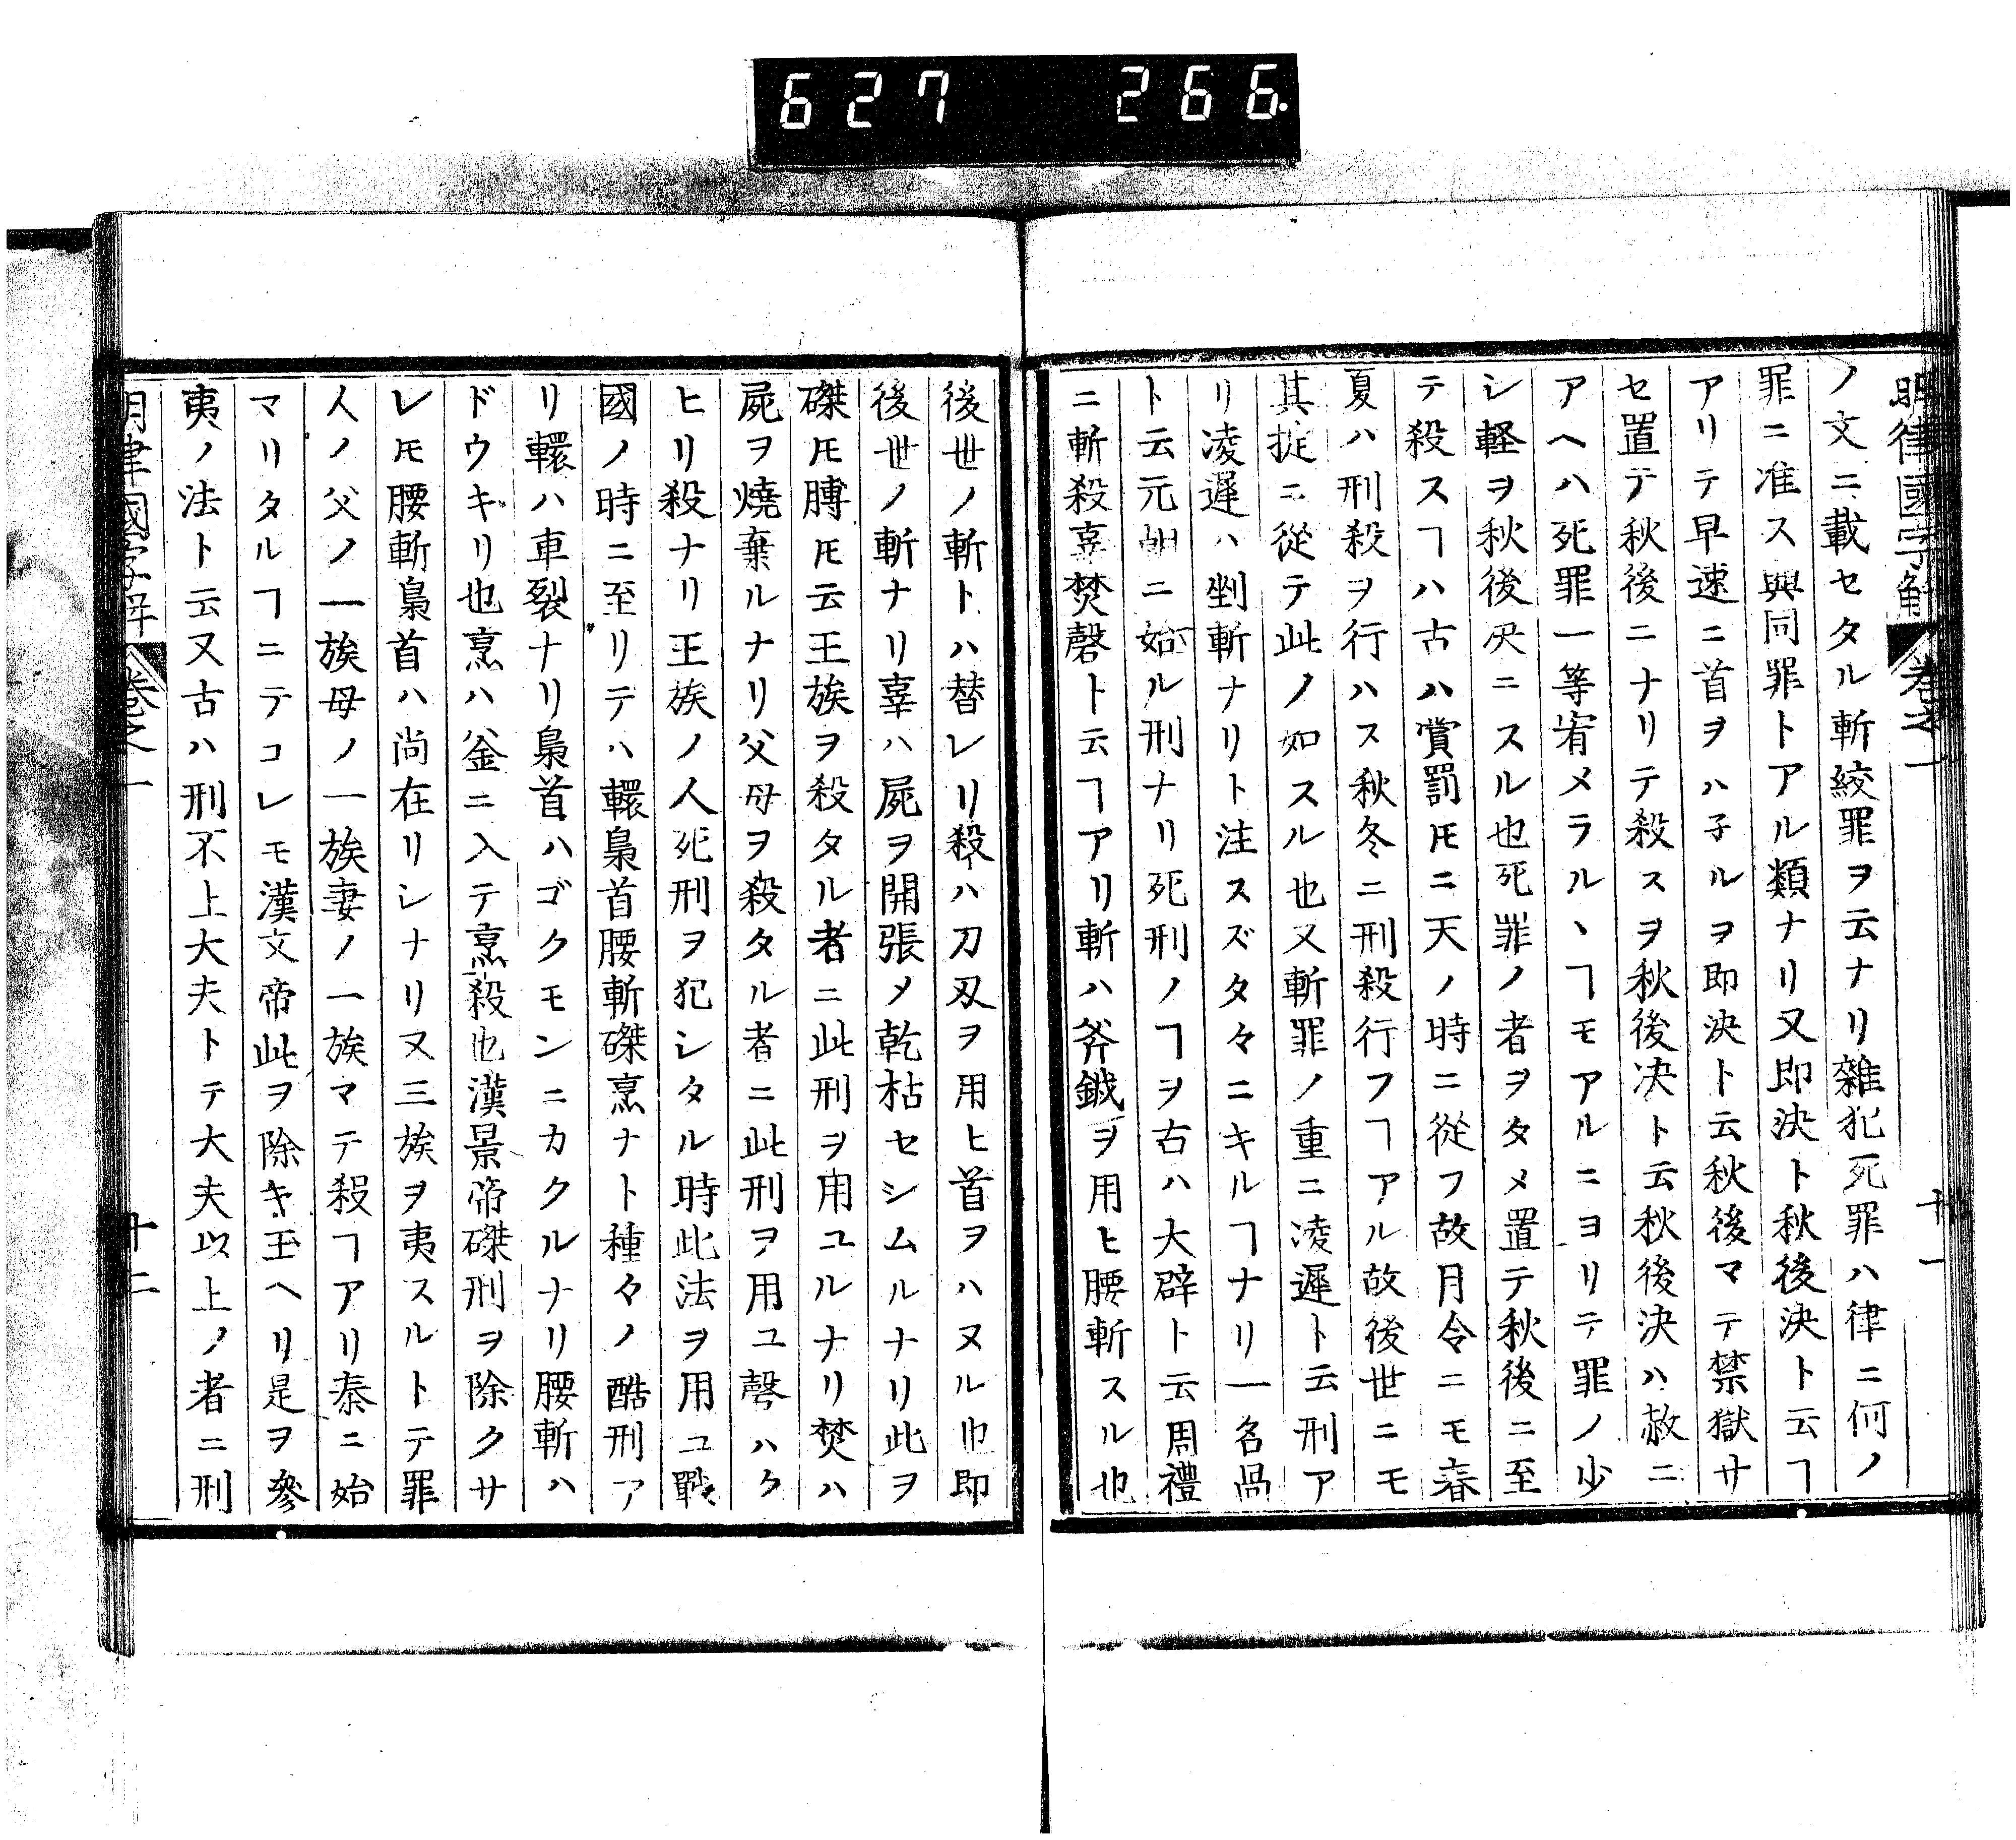 627 266.
明律國字解 卷之一 十一
ノ文ニ載セタル斬絞罪ヲ云ナリ雜犯死罪ハ律ニ何ノ
罪ニ准ス與同罪トアル類ナリ又即決ト秋後決ト云ヿ
アリテ早速ニ首ヲハ子ルヲ即決ト云秋後マテ禁獄サ
セ置テ秋後ニナリテ殺スヲ秋後决ト云秋後決ハ赦ニ
アヘハ死罪一等宥メラルヽヿモアルニヨリテ罪ノ少
シ軽ヲ秋後决ニスル也死罪ノ者ヲタメ置テ秋後ニ至
テ殺スヿハ古ハ賞罰𪜈ニ天ノ時ニ從フ故月令ニモ春
夏ハ刑殺ヲ行ハス秋冬ニ刑殺行フヿアル故後世ニモ
其掟ニ從テ此ノ如スル也又斬罪ノ重ニ凌遲ト云刑ア
リ凌遲ハ剉斬ナリト注スズタ々ニキルヿナリ一名咼
ト云元朝ニ始ル刑ナリ死刑ノヿヲ古ハ大辟ト云周禮
ニ斬殺辜焚磬ト云ヿアリ斬ハ斧鉞ヲ用ヒ腰斬スル也
後世ノ斬トハ替レリ殺ハ刀刄ヲ用ヒ首ヲハヌル也即
後世ノ斬ナリ辜ハ屍ヲ開張メ乾枯セシムルナリ此ヲ
磔𪜈膊𪜈云王族ヲ殺タル者ニ此刑ヲ用ユルナリ焚ハ
屍ヲ燒棄ルナリ父母ヲ殺タル者ニ此刑ヲ用ユ磬ハク
ヒリ殺ナリ王族ノ人死刑ヲ犯シタル時此法ヲ用ユ戰
國ノ時ニ至リテハ轘梟首腰斬磔烹ナト種々ノ酷刑ア
リ轘ハ車裂ナリ梟首ハゴクモンニカクルナリ腰斬ハ
ドウキリ也烹ハ釜ニ入テ烹殺也漢景帝磔刑ヲ除クサ
レ𪜈腰斬梟首ハ尚在リシナリ又三族ヲ夷スルトテ罪
人ノ父ノ一族母ノ一族妻ノ一族マテ殺ヿアリ秦ニ始
マリタルヿニテコレモ漢文帝此ヲ除キ玉ヘリ是ヲ參
夷ノ法ト云又古ハ刑不上大夫トテ大夫以上ノ者ニ刑
明律國字解 卷之一 十二